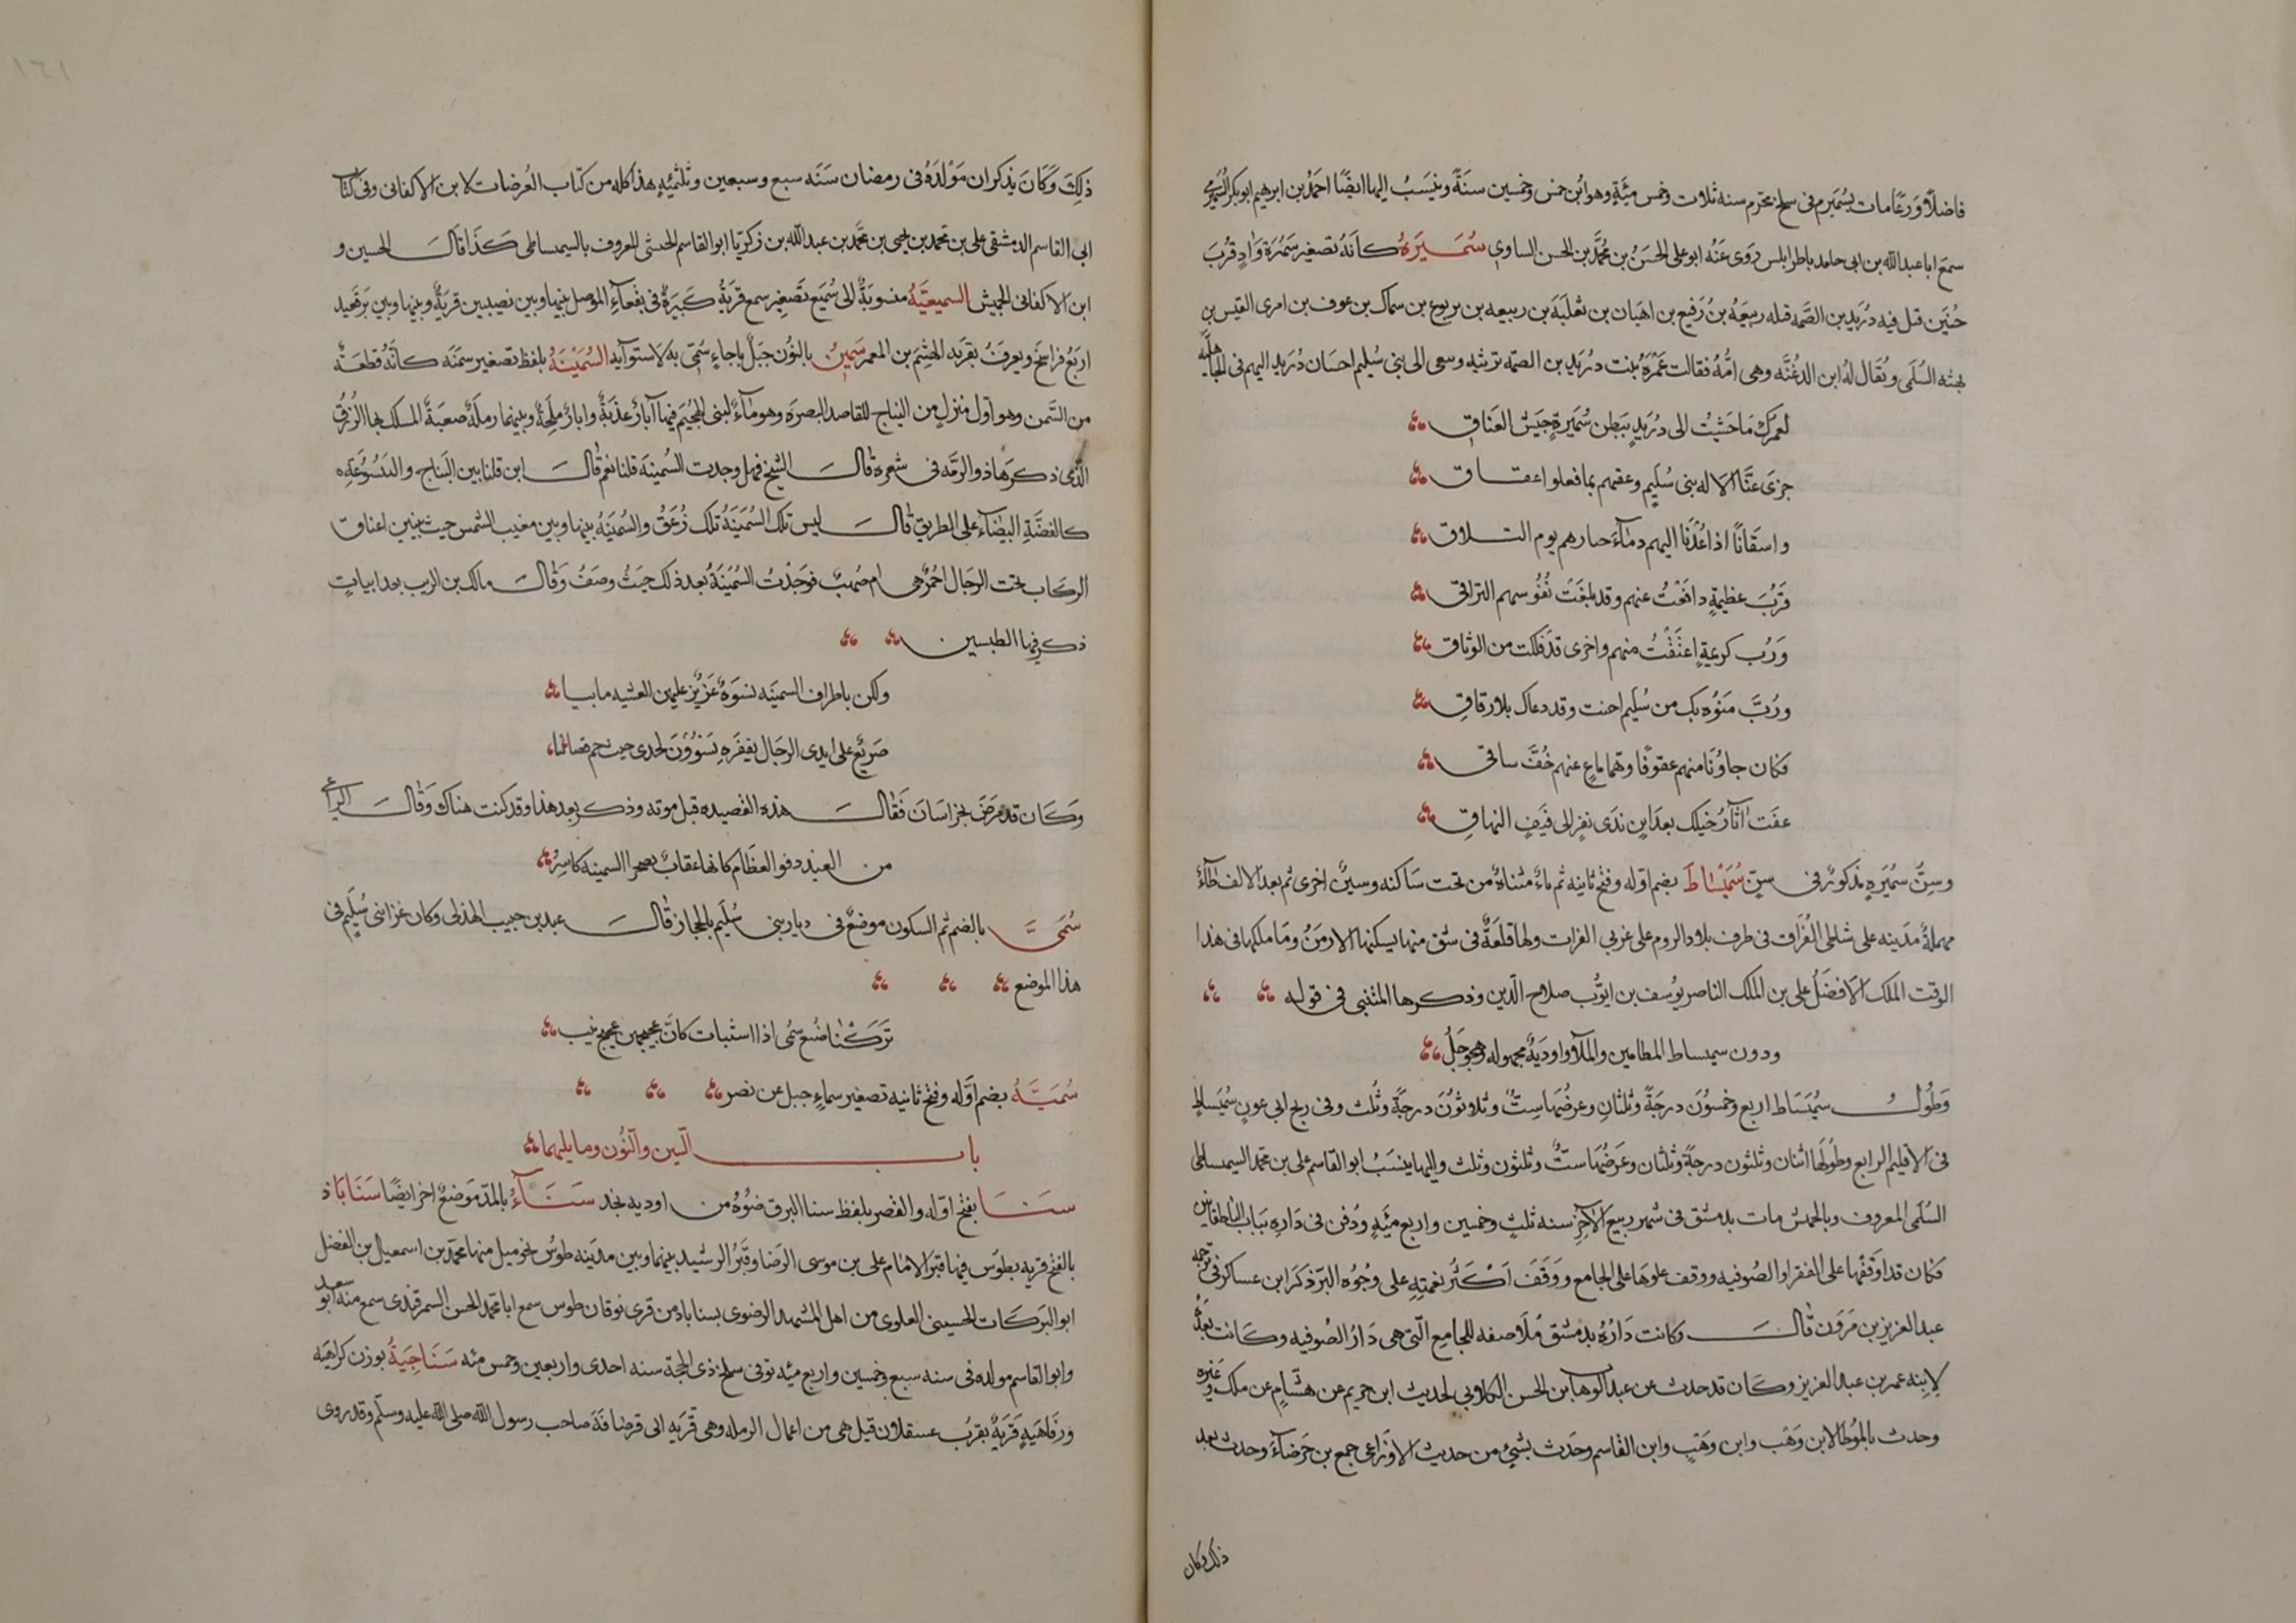 فاضلًا وَرعًا مات بسُمَيرم فى سلخ محرم سنه ثلاث وخمس مئةٍ وهو ابن خمس وخمسين سنةً وينسَبُ اليها ايضًا احمدُ بن ابرهيم ابو بكر السُّميرى
سمعَ ابا عبد الله بن ابى حامد باطرابلس رَوى عَنهُ ابو على الحسَنُ بن مُحَّد بن الحسن الساوى سُمَــيرَهُ كانهُ تصغير سَمُرَة وَادٍ قربَ
حُنَين قتل فيه دُرَيد بن الصَّمه قتله ربيعَهُ بن رُفَيع بن اهبَان بن ثعلبَهَ بن ربيعه بن يربوع بن سماك بن عوف بن امرى القيس بن
بهثه السُلَمى ويُقَال لهُ ابن الدغنَّه وهى امُّهُ فقالت عَمْرَهُ بنت دُرَيدِ بن الصمّه ترثيه وسعى الى بنى سُليم احسَان دُرَيد اليهم فى الجاهليَّه
لعمرك مَا خَشيتُ الى دُرَيدٍ ببَطن سُمَيرةٍ جيَش العَناقِ
جزَى عَنّا الاله بنى سُلَيمٍ وعقهم بما فعلوا عقاق
واسقانَا اذا عُدْنَا اليهم دمآءَ حبارهم يوم التلاق
فرُبَّ عظيمةٍ دافَعْتَ عنهم وقد بلغَتْ نُفُوسهم التراقى
وَرُب كريمةٍ اعتَقْتَ منهم واخرى قدَ فككت من الوثاق
ورُبَّ مَنوّه بك من سُلَيمٍ احنت وقد دعاك بلا رقاقِ
فكان جاوُنَا منهم عقوقًا وهمًّا ماع عنهم خُفَّ ساقى
عفَت اثَآرُ خيَلك بعدَ اينٍ ندَى نفرٍ الى فَيَفٍ النهاقِ
وسِنُّ سمَيَرهٍ مذكورٌ فى سِنّ سُمَيْسَاطَ بضم اوّله وفتح ثانيه ثم يآءٌ مثناةٌ من تحت سَاكنه وسينٌ اخرى ثم بعد الالف طآءٌ
مهملةٌ مدَينه على شاطى الفُرَات فى طرف بلاد الروم على غربي الفرات ولها قلعَةٌ فى شق منها يسكنها الارمَنُ ومَا ملكها فى هذا
الوقت الملك الافضَلُ على بن الملك الناصر يوُسف بن ايوُّب صلاح الدّين وذكرها المتنبى فى قوله
ودون سميساط المطامير والملا واوديَةٌ مجهوله وهجوَجَلُ
وَطُولُ سُمَيْسَاط اربع وخمسُوَن درجَةً وثلثانِ وعرضُهَا ستٌ وثلاثوُنَ درجَةً وثُلث وفى زيج ابى عونٍ سُمَيساطُ
فى الاقليم الرابع وطُولهَا اثنان وثلثون درجةً وثلثان وعَرضُهَا ستٌ وثلثون وثلث واليها ينسَبُ ابو القاسم على بن محمّد السيمساطى
السُلَمى المعروف وبالحمش مات بدمشق فى شهر ربيع الآخِر سنه ثلثٍ وخمسين واربع مئهٍ ودُفن فى دَارِه بَباب الناطفانيين
فكان قد اوَقفَها على الفقرا والصُوفيه ووقف علوهَا على الجامع ووَقفَ اكَثَرَ نعمَتِهِ على وجُوه البّر ذكرَ ابن عساكر فى ترجمه
عبد العزيز بن مَرَوَن قالَ وكانت دَارُهُ بدمشق مُلَاصقه للجامِع التّى هى دَارُ الصُوفيه وكانت بعَدَهُ
لابنِه عمر بن عبد العزيز وكَان قد حدث عن عبد الوهاب بن الحسن الكلابى لحديث ابن خريم عن هشَامٍ عن ملك وغَيره
وحدث بالمُوطَا لابن وَهْب وابن وَهَبٍ وابن القاسم وحَدث بشَئٍ من حديث الاوَزاعى جمع بن جَوصَآءَ وحدث بعد
ذلك وكان
١٦١
ذلِكَ وَكانَ يذكر ان مَوْلدَهُ فى رمضان سَنَه سبع وسبعين وثلثمئهٍ هذا كله من كتاب العُرضات لابن الاكفانى وفى كتاب
ابى القاسم الدمشقى على بن محمد بن يحيى بن محَّد بن عبد الله بن زكرَيا ابو القاسم الحبشى المعروف بالسيمساطى كَذَا قَالَ الحسين و
ابن الاكفانى الجميش السميعيَّهُ منسوبةٌ الى سُمَيَع تصَغِير سمع قريَةٌ كَبيرَةٌ فى بقعَآءِ الموصل بينها وبين نصيبين قريَةٌ وبينها وبين بَرقعيد
اربَعُ فراسخَ ويعرفَ بقريَهِ الهثيَم بن المعمر سَمِينٌ بالنُوّن جبَلٌ باجاءٍ سُمّى به لاستوآيه السُمَيْنَةُ بلفظ تصغير سمنَه كانّهُ قطعَةٌ
من السَّمن وهو اوّل منزلٍ من النِباج للقاصد البصرَه وهو مآءٌ لبنى الهُجيَم فيها آبارٌ عذَبةٌ وابارٌ ملَحةٌ وبينهما رملَةٌ صعبَةٌ المسلك بها الزُرقُ
الذَّى ذكرَها ذو الرمّه فى شعره قالَ الشيخ فهل وجدت السُمينهَ قلنا نعم قالَ اين قلنا بين النّباج والينَسُوعَةِ
كالفضَّةِ البيَضآء على الطريق قالَ ليس تلك السُمَيَنَهُ تلك زُعَقٌ والسُمَيَنَهُ بينها وبين مغيب الشمس حيث تبينِ اعناق
الركاب تحت الرِحَال احُمُرٌ هى ام صُهبٌ فوَجدْتُ السُمَيَنَهُ بعد ذلك حيَثُ وصَفَ وَقالَ مالك بن الريب بعد ابياتٍ
ذكر فيها الطبسين
ولكن باطراف السمينَه نسوَهٌ عَزيزٌ عليهن العشيه ما بيا
صَريَعٌ على ايدى الرجَال بقِفَرهٍ يسَوُّوُنَ لحدى حيث حم قضائيا
وَكانَ قد مَرضَ بخراسَانَ فَقالَ هذه القصيده قبل موته وذكر بعد هذا وقد كنت هناك وَقالَ الراعى
من العيد دفو العظَام كانها عقابٌ بصحرا السمينه كاسِرُ
سُمَىَّ بالضم ثم السكون موضعٌ فى ديار بنى سُلَيَم بالحجاز قالَ عبد بن حبيب الهذلى وكان غزا بنى سُلَيمٍ فى
هذا الموضع
تَرَكَنْا ضُبع سُمى اذا استبات كانَّ عجيجهن عجيج نيب
سُمَيَّهُ بضم اوَّله وفتح ثانيه تصغير سماءٍ جبل عن نصر
باب السّين والنُّون وما يليهما
سَنَا بفتح اوّله والقصر بلفظ سنا البرق ضوُهُ من اوديه نجد سَنَآءُ بالمدّ مَوضعٌ اخر ايضًا سَنَابَاذ
بالفتح قريه بطوُس فيها قبرَ الامَام على بن موسى الرضا وقَبرُ الرشيد بينها وبين مدينه طوُس نحو ميل منها محمّد بن اسمعيل بن الفضل
ابو البَركَات الحسينى العلوى من اهل المشهد الرضوى بسناباد من قرى نوقان طوس سمع ابا محّمد الحسن السمرقندى سمع منه ابو سعيد
وابو القاسم مولده فى سنه سبع وخمسين واربع مئه توفى سلخ ذى الحجّة سنه احدى واربعين وخمس مئه سَنَاجِيَةُ بوزن كراهَيه
ورَفَاهيَهٍ قَريَةٌ بقربُ عسقلان قيل هى من اعمال الرمله وهى قريَه ابى قرضافة صاحب رسول الله صلى الله عليه وسلّم وقد روى